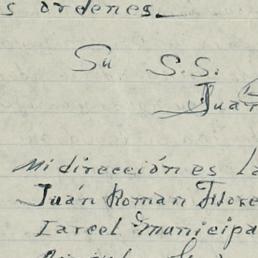 s ordenes.
Su S.S.
Juan
Mi dirección es La
Juán Román Flores
Carcel Municipa